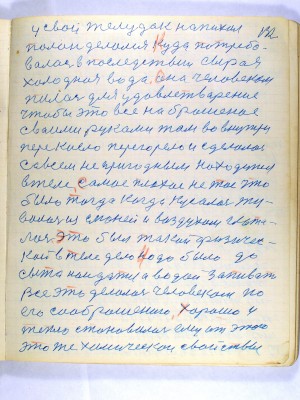 122
и свой желудак напихал
полон делалия Куда потребо-
валася впоследствии сырая
холодная вода. Она человеком
пилася для удовлетварение
чтобы это все набрашеное
сваими руками там во внутри
перекисло перегорело и сделалося
совсем не пригодным находится
в теле, самое плохое не тое это
было тогда когда кусалася жи-
валася слюней и воздухом глата-
лася. Это был такой физичес-
кой в теле дело Надо было до
сыта наядатся водой запивать
все это делалося человеком по
его соображению, хорошо и
тепло становилося ему от этого
это те химическии свойствы